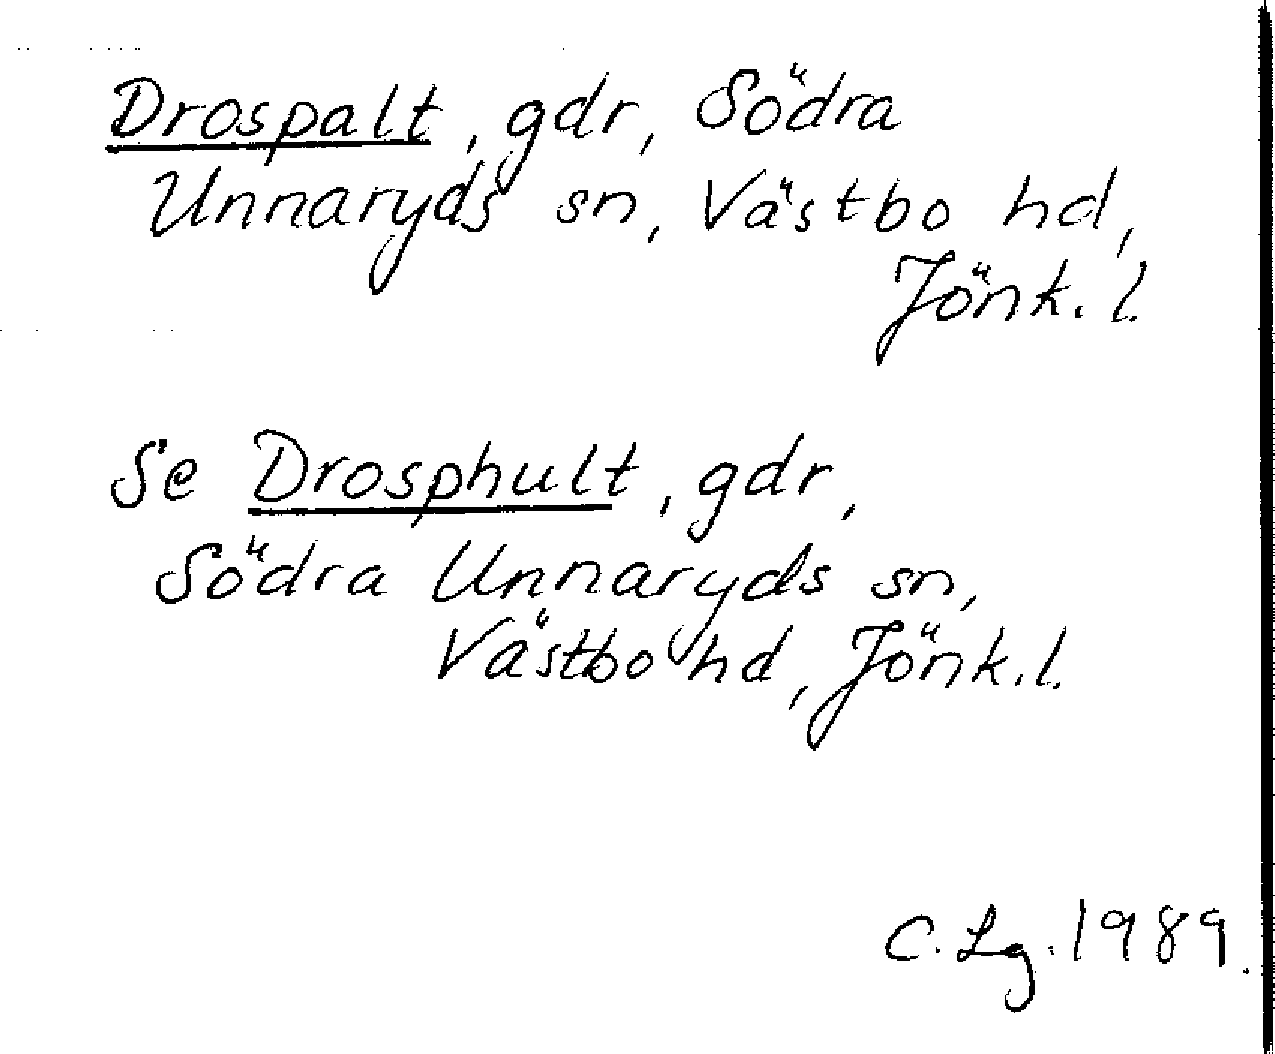 Drospalt, gdr, Södra
Unnaryds sn, Västbo hd,
Jönk. l.
Se Drosphult, gdr,
Södra Unnaryds sn,
Västbo hd, Jönk. l.
C. Lg. 1989.